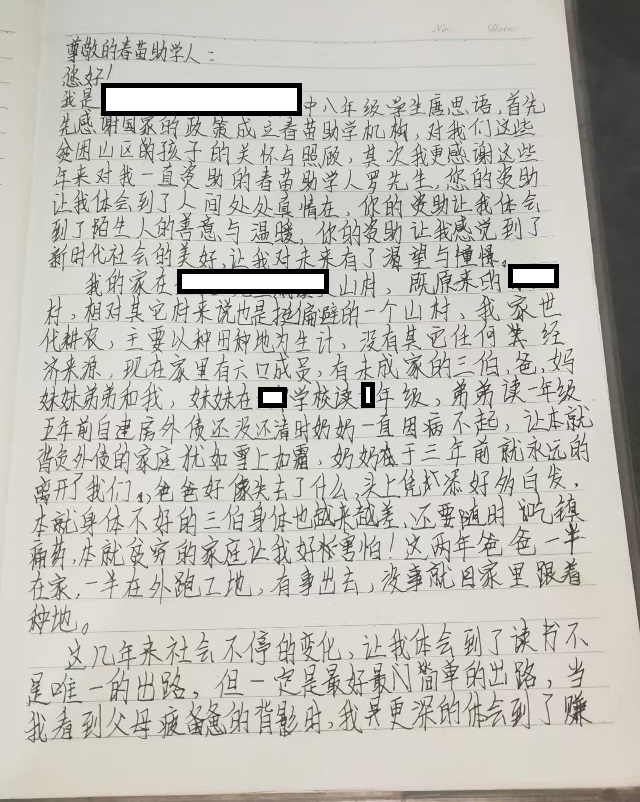 No: Date:
尊敬的春苗助学人：
您好！
我是 中八年级学生唐思语，首先
先感谢国家的政策成立春苗助学机构，对我们这些
贫困山区的孩子的关怀与照顾，其次我更感谢这些
年来对我一直资助的春苗助学人罗先生，您的资助
让我体会到了人间处处真情在，你的资助让我体会
到了陌生人的善意与温暖，你的资助让我感觉到了
新时代社会的美好，让我对未来有了渴望与憧憬。
我的家在 山村，既原来的
村，相对其它村来说也是挺偏避的一个山村，我家世
代耕农，主要以种田种地为生计，没有其它任何 经
济来源，现在家里有六口成员，有未成家的三伯，爸，妈
妹妹弟弟和我，妹妹在 学校读 年级，弟弟读一年级
五年前自建房外债还没还清时奶奶一直因病不起，让本就
背负外债的家庭犹如雪上加霜，奶奶 于三年前就永远的
离开了我们，爸爸好像失去了什么，头上凭 添好多白发，
本就身体不好的三伯身体也越来越差，还要随时吃镇
痛药，本就贫穷的家庭让我好 害怕！这两年爸爸一半
在家，一半在外跑工地，有事出去，没事就回家里跟着
种地。
这几年来社会不停的变化，让我体会到了读书不
是唯一的出路，但一定是最好最 简单的出路，当
我看到父母疲惫的背影时，我 更深的体会到了赚